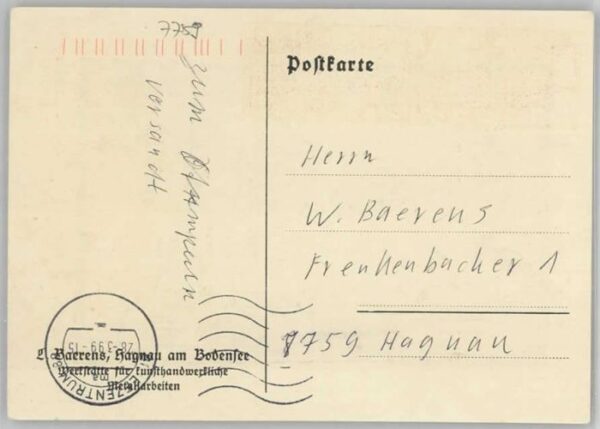 7759
zum
versandt
Postkarte
Herrn
W. Baerens
Frenkenbacher 1
7759 Hagnau
28-3.99-15
ma
ZENTRUM
L. Baerens, Hagnau am Bodensee
Werkstätte für kunsthandwerkliche
Metallarbeiten